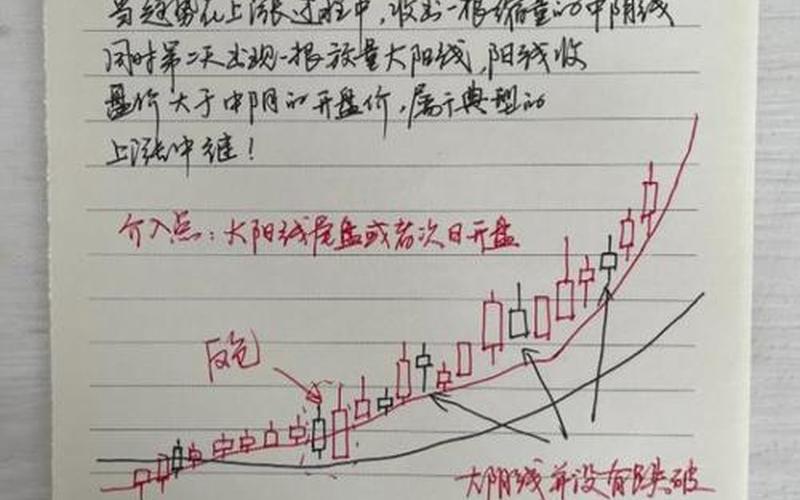 当冠男在上涨过程中,收出一根缩量的中阴线
同时第二天出现一根放量大阳线,阳线收
盘价大于中阴的开盘价,属于典型的
上涨中继!
介入点:大阳线尾盘或者次日开盘
反包
大阴线并没有跌破